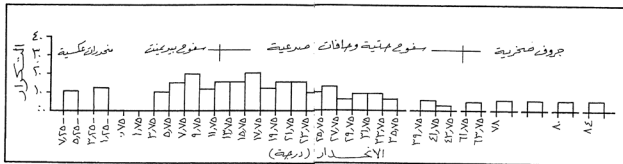 ٤٠
٣٠
٢٠
١٠
٠٠
التكرار
منحدرات عكسية
سفوح بيديمنت
سفوح حتية وحافات صدعية
جروف صخرية
٧,٢٥-
٥,٢٥-
٣,٢٥-
١,٢٥-
٠,٧٥
٣,٧٥
٥,٧٥
٧,٧٥
٩,٧٥
١١,٧٥
١٣,٧٥
١٥,٧٥
١٧,٧٥
١٩,٧٥
٢١,٧٥
٢٣,٧٥
٢٥,٧٥
٢٧,٧٥
٢٩,٧٥
٣١,٧٥
٣٣,٧٥
٣٥,٧٥
٣٩,٧٥
٤١,٧٥
٤٣,٧٥
٦١,٧٥
٦٣,٧٥
٧٨
٨٠
٨٤
الانحدار (درجة)